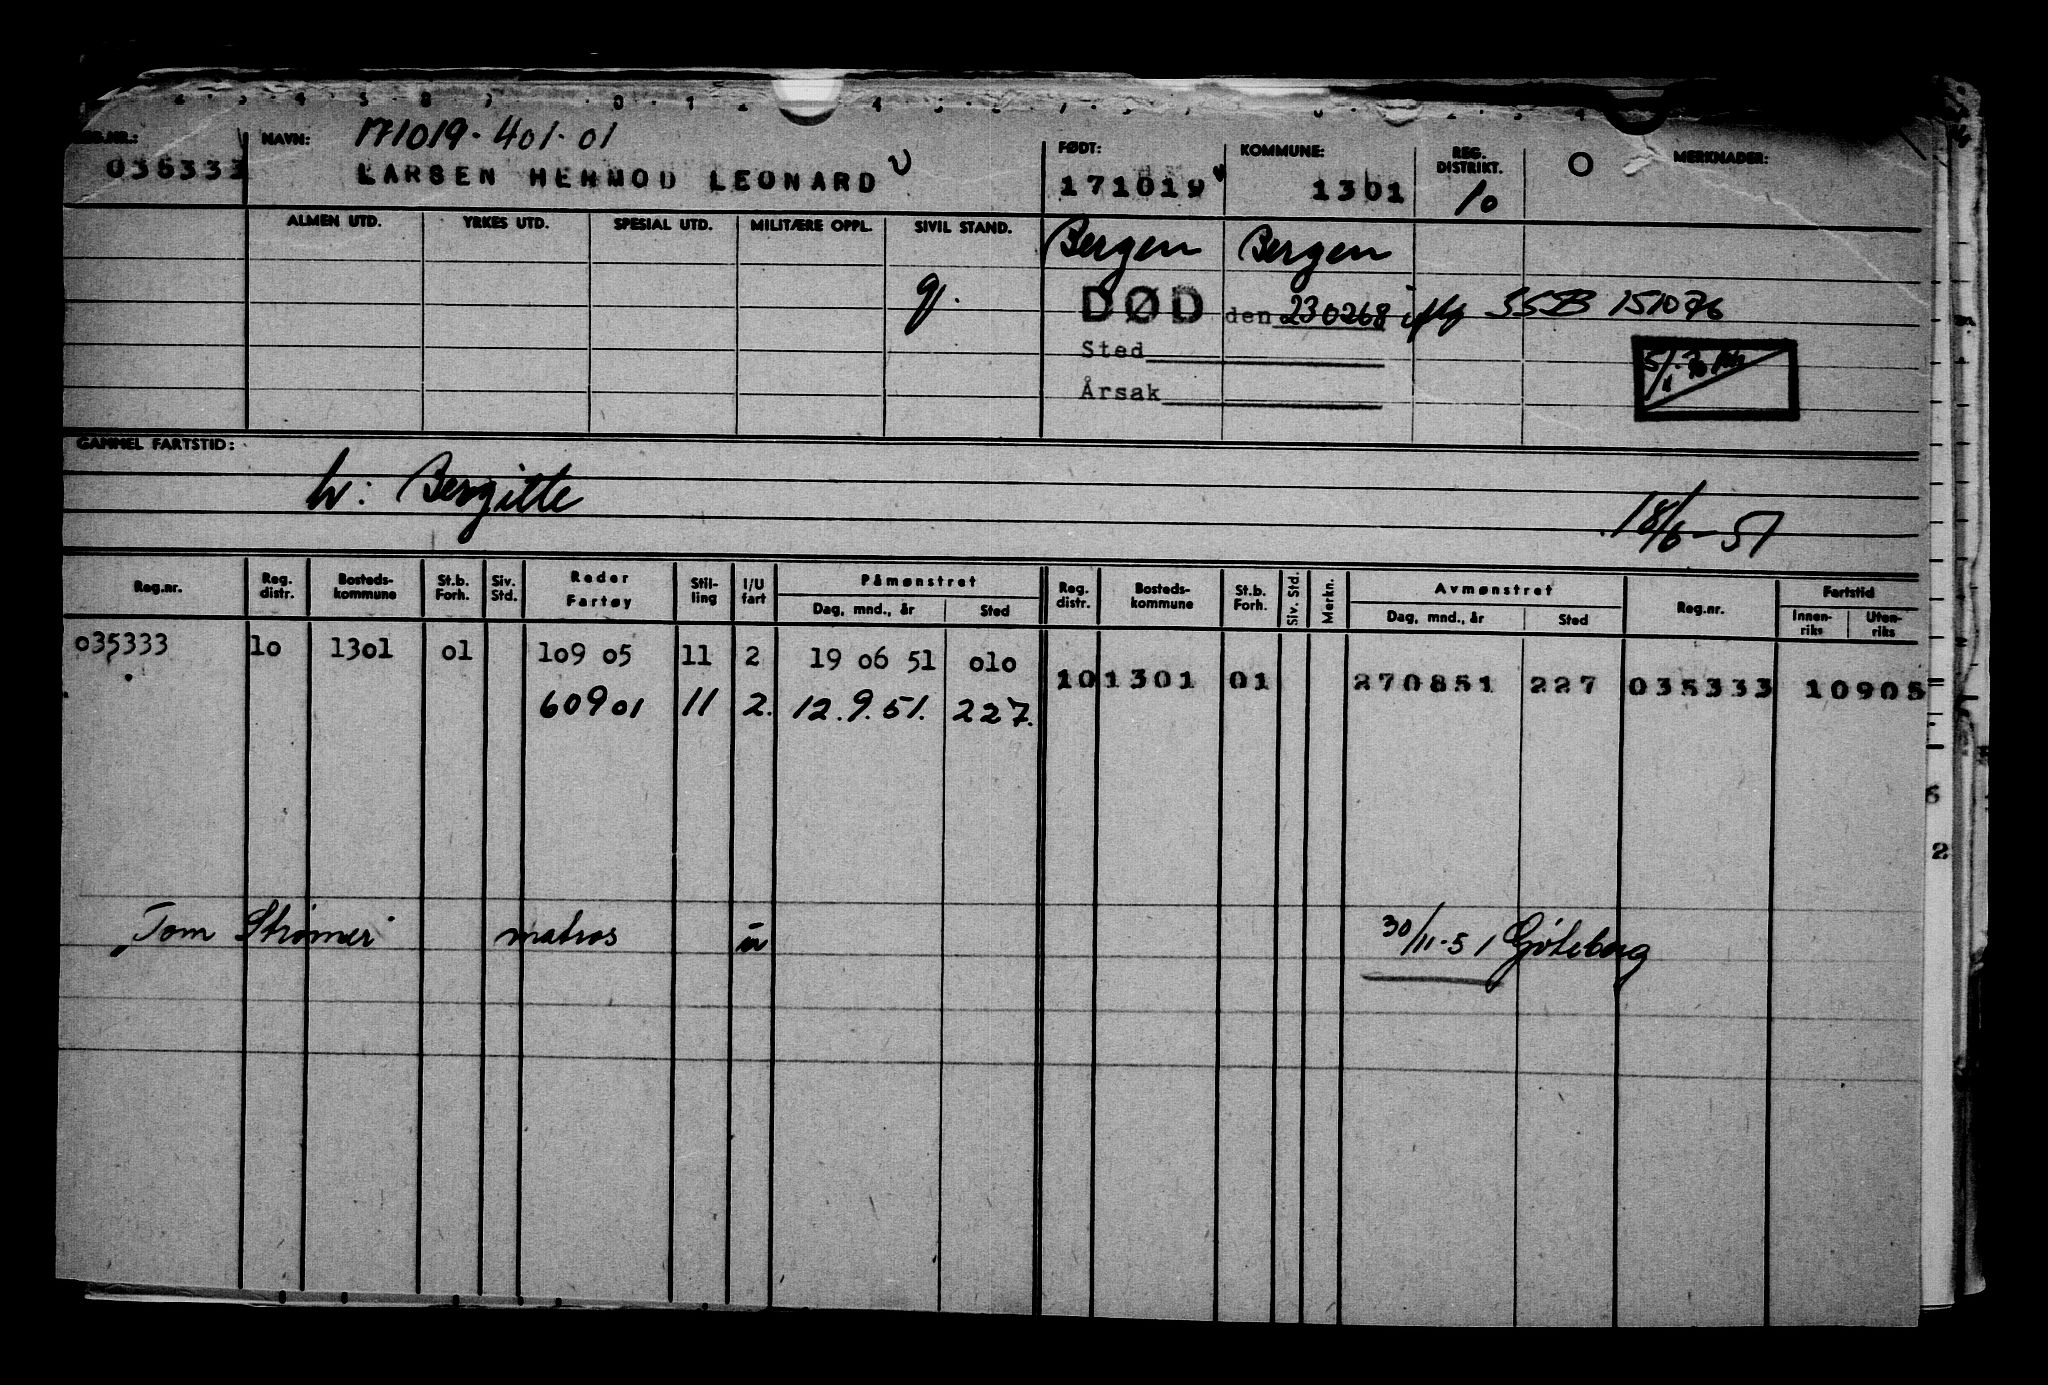 REG.NR.: NAVN: 171019-401-01 FØDT: KOMMUNE: REG. DISTRIKT. MERKNADER:
035333 LARSEN HERMOD LEONARD 171019 1301 10
ALMEN UTD. YRKES UTD. SPESIAL UTD. MILITÆRE OPPL. SIVIL STAND. Bergen Bergen
g. DØD den 230268 iflg SSB 151076
Sted
Årsak
GAMMEL FARTSTID:
h: Bergitte 18/6-51
Reg.nr. Reg. distr. Bosteds-kommune St.b. Forh. Siv. Std. Reder Fartøy Stil-ling I/U fart Påmønstret Dag, mnd., år Sted Reg. distr. Bosteds-kommune St.b. Forh. Siv. Std. Merkn. Avmønstret Dag, mnd., år Sted Reg.nr. Fartstid Innen-riks Uten-riks
035333 10 1301 01 109 05 11 2 19 06 51 010 10 1301 01 270851 227 035333 10905
60901 11 2. 12.9.51. 227.
Tom Strømer matros u 30/11-51 Göteborg